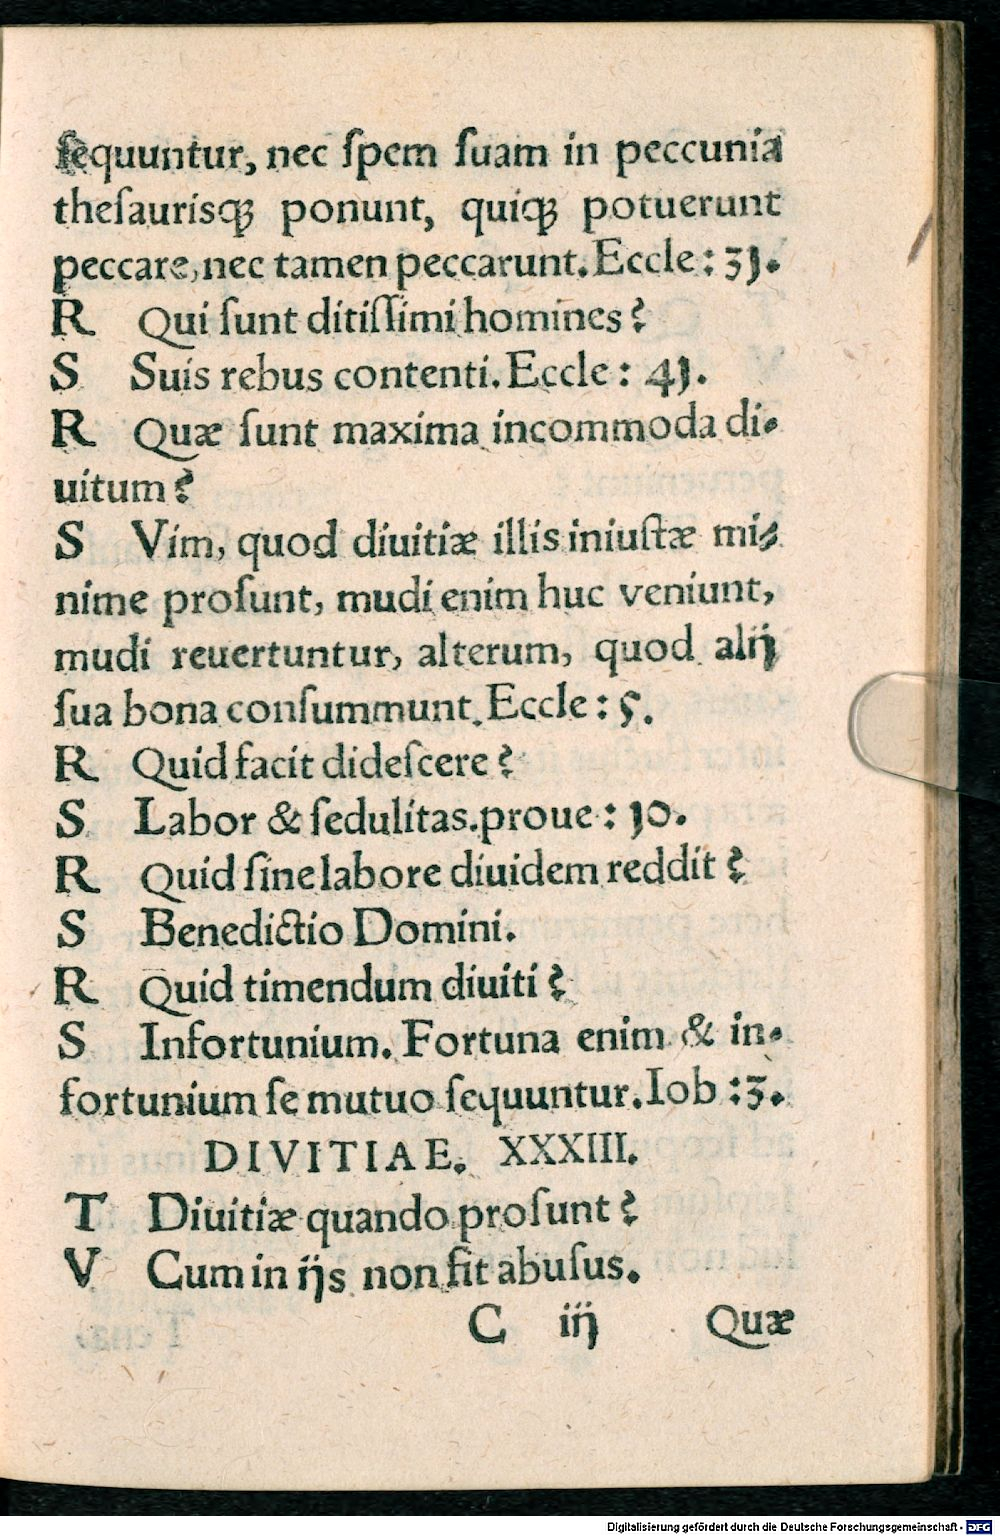 ſequuntur, nec ſpem ſuam in peccunia
theſaurisqꝫ ponunt, quiqꝫ potuerunt
peccare, nec tamen peccarunt. Eccle : 31.
R Qui ſunt ditiſſimi homines ?
S Suis rebus contenti. Eccle : 41.
R Quæ ſunt maxima incommoda di-
uitum ?
S Vim, quod diuitiæ illis iniuſtæ mi-
nime proſunt, mudi enim huc veniunt,
mudi reuertuntur, alterum, quod alij
ſua bona conſummunt. Eccle : 5.
R Quid facit dideſcere ?
S Labor & ſedulitas. proue : 10.
R Quid ſine labore diuidem reddit ?
S Benedictio Domini.
R Quid timendum diuiti ?
S Infortunium. Fortuna enim & in-
fortunium ſe mutuo ſequuntur. Iob : 3.
DIVITIAE. XXXIII.
T Diuitiæ quando proſunt ?
V Cum in ijs non fit abuſus.
C iij Quæ
Digitalisierung gefördert durch die Deutsche Forschungsgemeinschaft - DFG